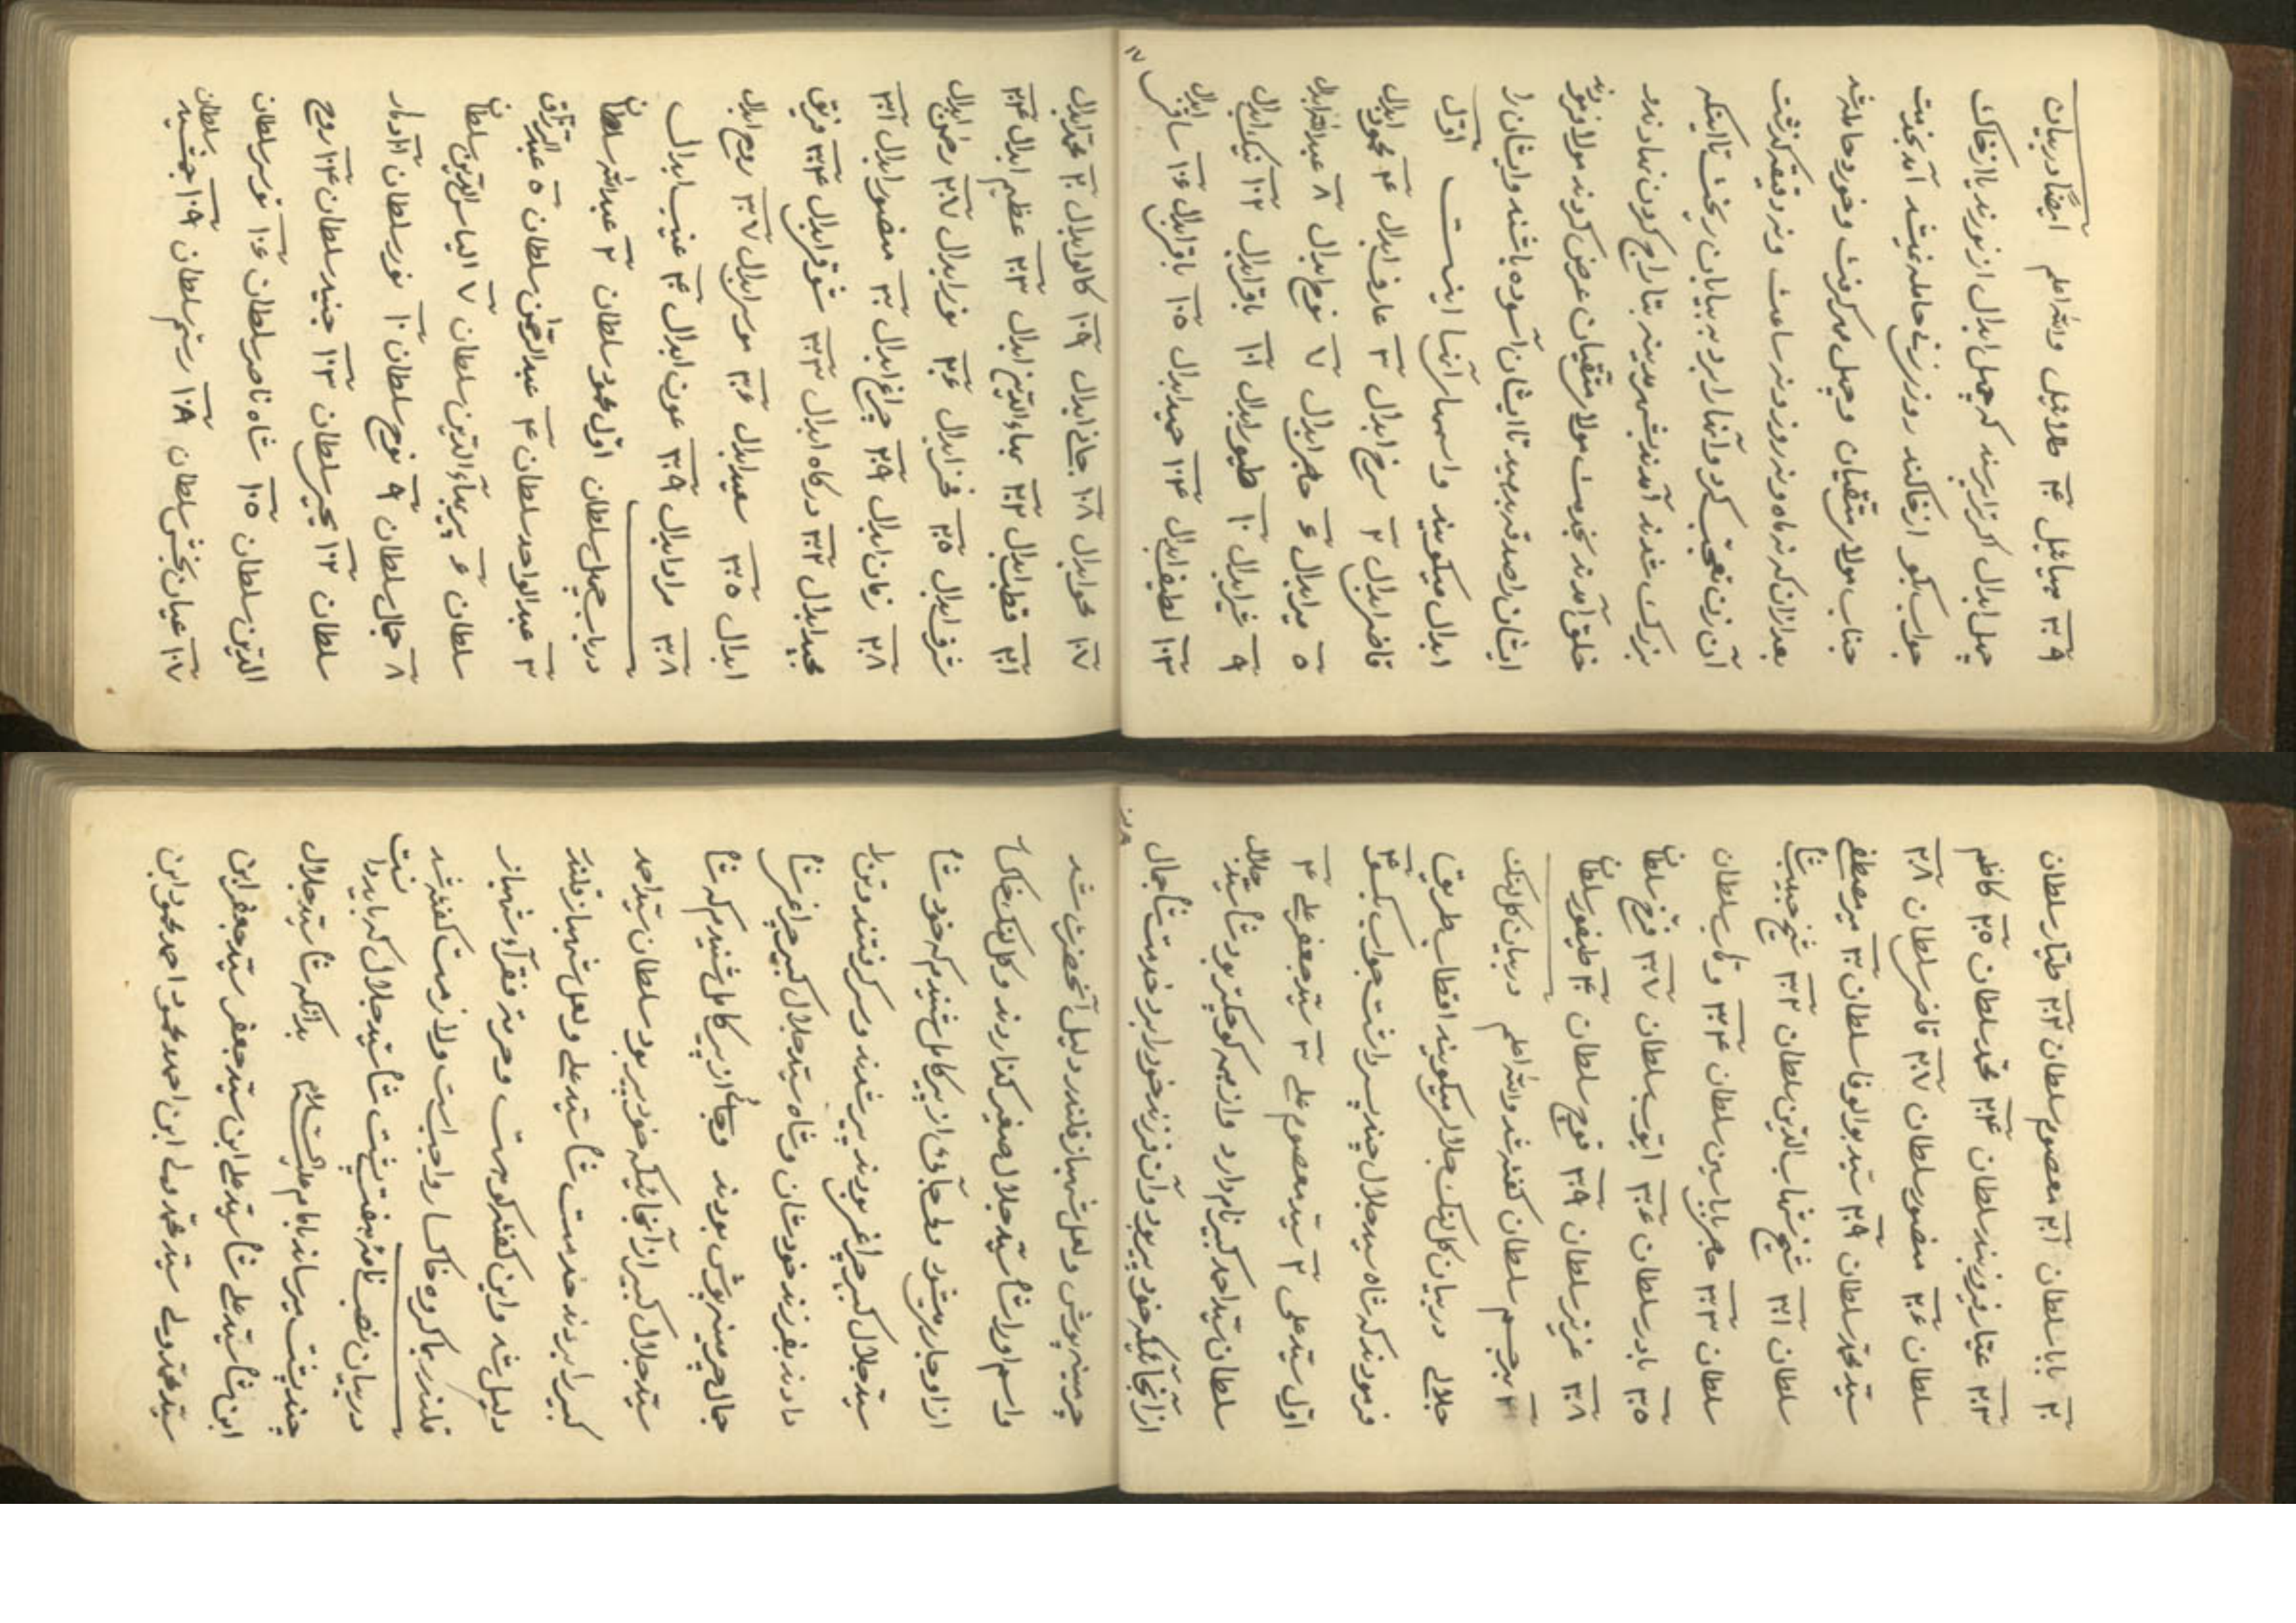 ۳۰۹ میائیل ۴۰ طلائیل والله اعلم ایضًا در بیان
چهل ابدال اگر پرسند که چهل ابدال از نورند یا از خاک
جواب بگو از خاکند روزی زنی حامله نمیشد آمد بخدمت
جناب مولای متقیان و چهل مهر گرفت و خورد حامله شد
بعد از آن که نه ماه و نه روز و نه ساعت و نه دقیقه گذشت
آن زن تعجب کرد و آنها را برد به بیابان ریخت تا اینکه
بزرگ شدند آمدند بشهر مدینه بتاراج کردن نهادند
خلق آمدند بخدمت مولای متقیان عرض کردند مولا فرمودند
ایشان را صدقه بدهید تا ایشان آسوده باشند و ایشان را
ابدال میگویند و اسمهای آنها اینست اوّل
قاضی ابدال ۲ سرخ ابدال ۳ عارف ابدال ۴ محمود ابدال
۵ میر ابدال ۶ حاضر ابدال ۷ نوح ابدال ۸ عبدالله ابدال
۹ خیر ابدال ۱۰ طیور ابدال ۱۰۱ باقر ابدال ۱۰۲ نیک ابدال
۱۰۳ لطیف ابدال ۱۰۴ حمید ابدال ۱۰۵ باقی ابدال ۱۰۶ ساقی ابدال
۱۰۷
۱۰۷ ابدال ۱۰۸ جانی ابدال ۱۰۹ کالو ابدال ۲۰ محمد ابدال
۲۰۱ قطب ابدال ۲۰۲ بهاءالدین ابدال ۲۰۳ عظیم ابدال ۲۰۴
شرف ابدال ۲۰۵ فخر ابدال ۲۰۶ نور ابدال ۲۰۷ رحمن ابدال
۲۰۸ زمان ابدال ۲۰۹ چراغ ابدال ۳۰ منصور ابدال ۳۰۱
مجید ابدال ۳۰۲ درکاه ابدال ۳۰۳ شوقی ابدال ۳۰۴ فریق
ابدال ۳۰۵ سعید ابدال ۳۰۶ موسی ابدال ۳۰۷ روح ابدال
۳۰۸ مراد ابدال ۳۰۹ عون ابدال ۴۰ غیب ابدال
در باب چهل سلطان اوّل محمود سلطان ۲ عبدالله سلطان
۳ عبدالواحد سلطان ۴ عبدالرحمن سلطان ۵ عبدالرزاق
سلطان ۶ پیر بهاءالدین سلطان ۷ الیاس الدین سلطان
۸ جمال سلطان ۹ نوح سلطان ۱۰ نور سلطان ۱۰۱ ادهار
سلطان ۱۰۲ یحیی سلطان ۱۰۳ جنید سلطان ۱۰۴ روح
الدین سلطان ۱۰۵ شاه ناصر سلطان ۱۰۶ نور سلطان
۱۰۷ عیان بخش سلطان ۱۰۸ رستم سلطان ۱۰۹ جمشید سلطان
۲۰ بابا سلطان ۲۰۱ معصوم سلطان ۲۰۲ طیار سلطان
۲۰۳ عیار فیروز بند سلطان ۲۰۴ محمد سلطان ۲۰۵ کاظم
سلطان ۲۰۶ منصور سلطان ۲۰۷ قاضی سلطان ۲۰۸
سید محمد سلطان ۲۰۹ سید ابوالوفا سلطان ۳۰ میر مصطفی
سلطان ۳۰۱ شیخ شهاب الدین سلطان ۳۰۲ شیخ حبیب شاه
سلطان ۳۰۳ حاجی بابا سین سلطان ۳۰۴ وهاب سلطان
۳۰۵ نادر سلطان ۳۰۶ ایّوب سلطان ۳۰۷ فرخ سلطان
۳۰۸ عزیز سلطان ۳۰۹ فوج سلطان ۴۰ طیفور سلطان
برجسم سلطان گفته شد والله اعلم در بیان کل لنگ
جلالی در بیان کل لنگ جلالی میگویند اقطاب طریق
فرمودند که شاه سید جلال چند پسر داشت جواب بگو ۴
اوّل سید علی ۲ سید معصوم علی ۳ سید جعفر علی ۴
سلطان سید احمد کبیر نام دارد و از همه کوچکتر بود شاه سید جلال
از آنجائیکه خود پیر بود و آن فرزند خود را برد خدمت شاه جمال
چرمینه پوش و لعل شهباز قلندر دلیل آنحضرت شد
و اسم او را شاه سید جلال صغیر گذاردند و کل لنگ خاک
از او جاری میشود و آقای از پیر کامل شنیدم که خود شاه
سید جلال کبیر چراغی بودند پیر شدند و سر گرفتند و تن را
دادند بفرزند خودشان و شاه سید جلال کبیر چراغی شاه
جمال چرمینه پوش بودند و جای از پیر کامل شنیدم که شاه
سید جلال کبیر از آنجائیکه خود پیر بود سلطان سید احمد
کبیر را بردند خدمت شاه سید علی و لعل شهباز قلندر
دلیل شد و این گفتگو هست و حرمت فقرا و شهباز
قلندر با گروه خاکسار واجب است و لازمست گفته شد
در بیان نصب نامه هفت پشت شاه سید جلال که باید دانست
چند پشت میرساند بامام علیه السلام بدانکه شاه سید جلال
ابن شاه سید علی شاه سید علی ابن سید جعفر سید جعفر ابن
سید محمد ولی سید محمد ولی ابن احمد محمود احمد محمود ابن